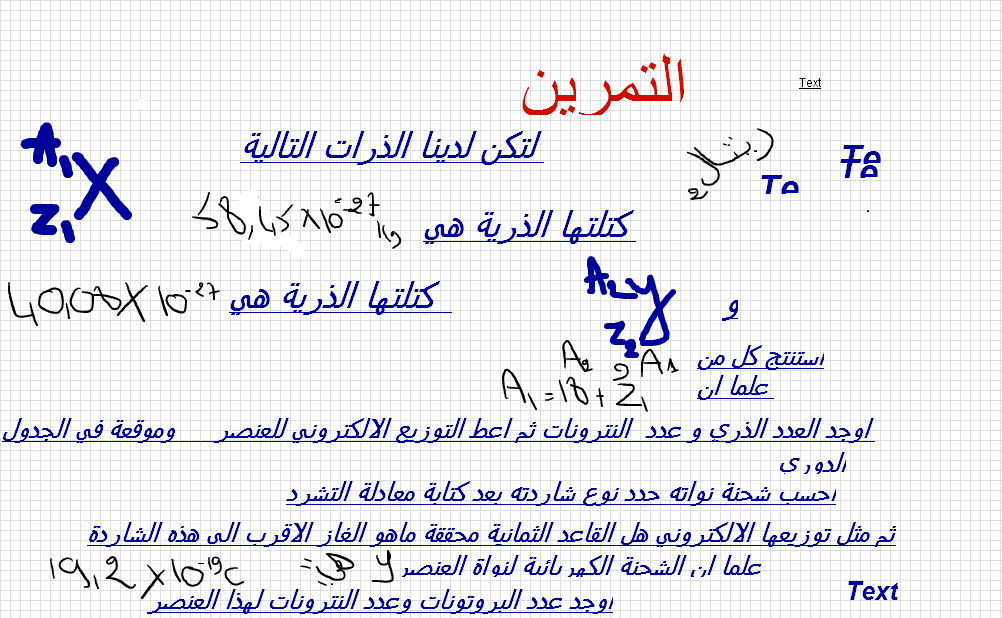 التمرين
Text
لتكن لدينا الذرات التالية
A1 X Z1
Te Te
Te
كتلتها الذرية هي 58,45×10^-27 kg
و A2 Y Z2 كتلتها الذرية هي 40,08×10^-27
استنتج كل من A1 و A2
علما ان A1 = 18 + Z1
اوجد العدد الذري و عدد النترونات ثم اعط التوزيع الالكتروني للعنصر وموقعة في الجدول
الدوري
احسب شحنة نواته حدد نوع شاردته بعد كتابة معادلة التشرد
ثم مثل توزيعها الالكتروني هل القاعد الثمانية محققة ماهو الغاز الاقرب الى هذه الشاردة
علما ان الشحنة الكهربائية لنواة العنصر y هي = 19,2×10^-19 c
اوجد عدد البروتونات وعدد النترونات لهذا العنصر
Text